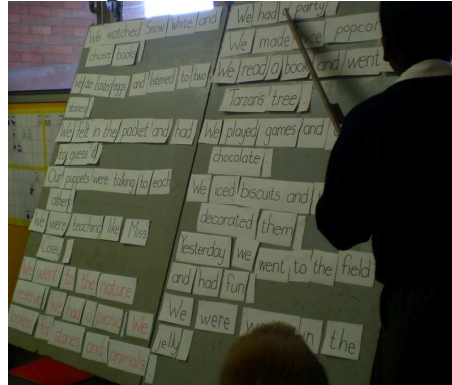 We watched Snow White and
chose books
we ate Easter eggs and listened to two
stories
We felt in the pocket and had
to guess
Our puppets were talking to each
other
We were teaching like Miss
Casey
We went to the nature
reserve We had a picnic We
looked for stones and animals
We had a party
We made rice popco
We read a book and went
Tarzan's tree
We played games and
chocolate.
We iced biscuits and
decorated them
Yesterday we went to the field
and had fun
We were in the
jelly